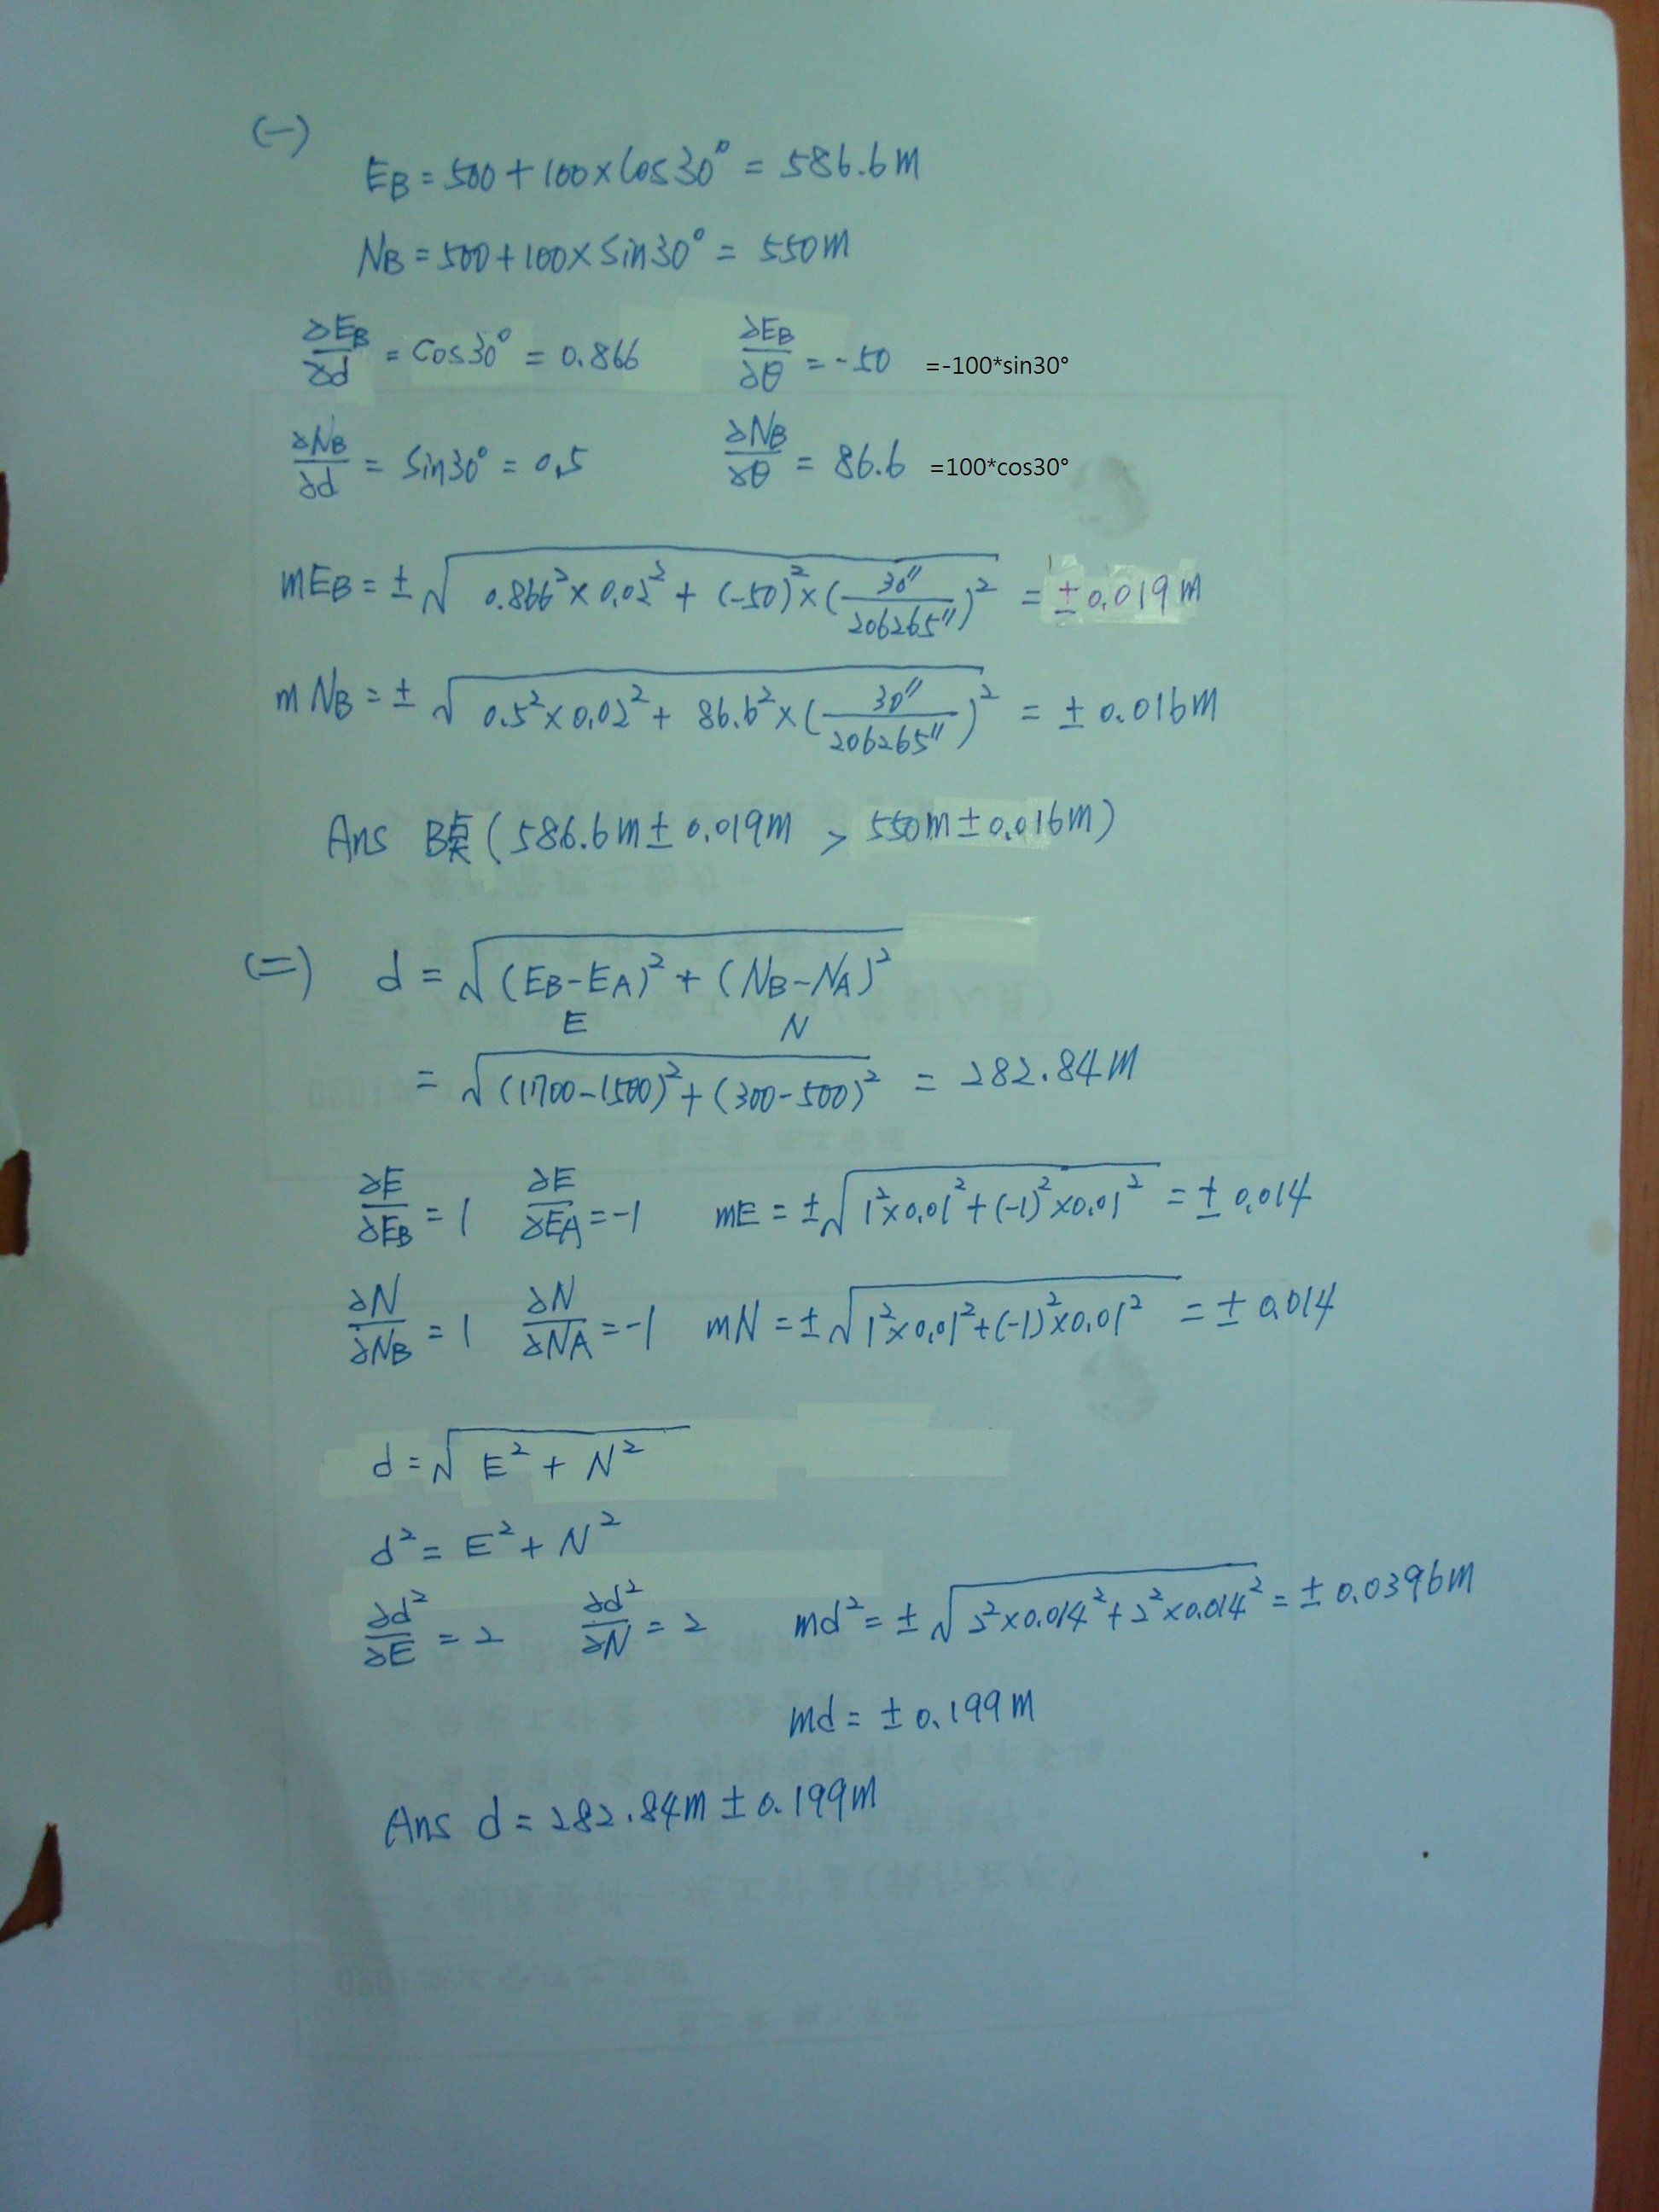 (一)
EB = 500 + 100 × Cos30° = 586.6m
NB = 500 + 100 × Sin30° = 550m
∂EB/∂d = Cos30° = 0.866 ∂EB/∂θ = -50 =-100*sin30°
∂NB/∂d = Sin30° = 0.5 ∂NB/∂θ = 86.6 =100*cos30°
mEB = ± √(0.866² × 0.02² + (-50)² × (30″/206265″)²) = ± 0.019m
mNB = ± √(0.5² × 0.02² + 86.6² × (30″/206265″)²) = ± 0.016m
Ans B點 (586.6m ± 0.019m , 550m ± 0.016m)
(二) d = √((EB-EA)² + (NB-NA)²)
E N
= √((1700-1500)² + (300-500)²) = 282.84m
∂E/∂EB = 1 ∂E/∂EA = -1 mE = ± √(1² × 0.01² + (-1)² × 0.01²) = ± 0.014
∂N/∂NB = 1 ∂N/∂NA = -1 mN = ± √(1² × 0.01² + (-1)² × 0.01²) = ± 0.014
d = √(E² + N²)
d² = E² + N²
∂d²/∂E = 2 ∂d²/∂N = 2 md² = ± √(2² × 0.014² + 2² × 0.014²) = ± 0.0396m
md = ± 0.199m
Ans d = 282.84m ± 0.199m